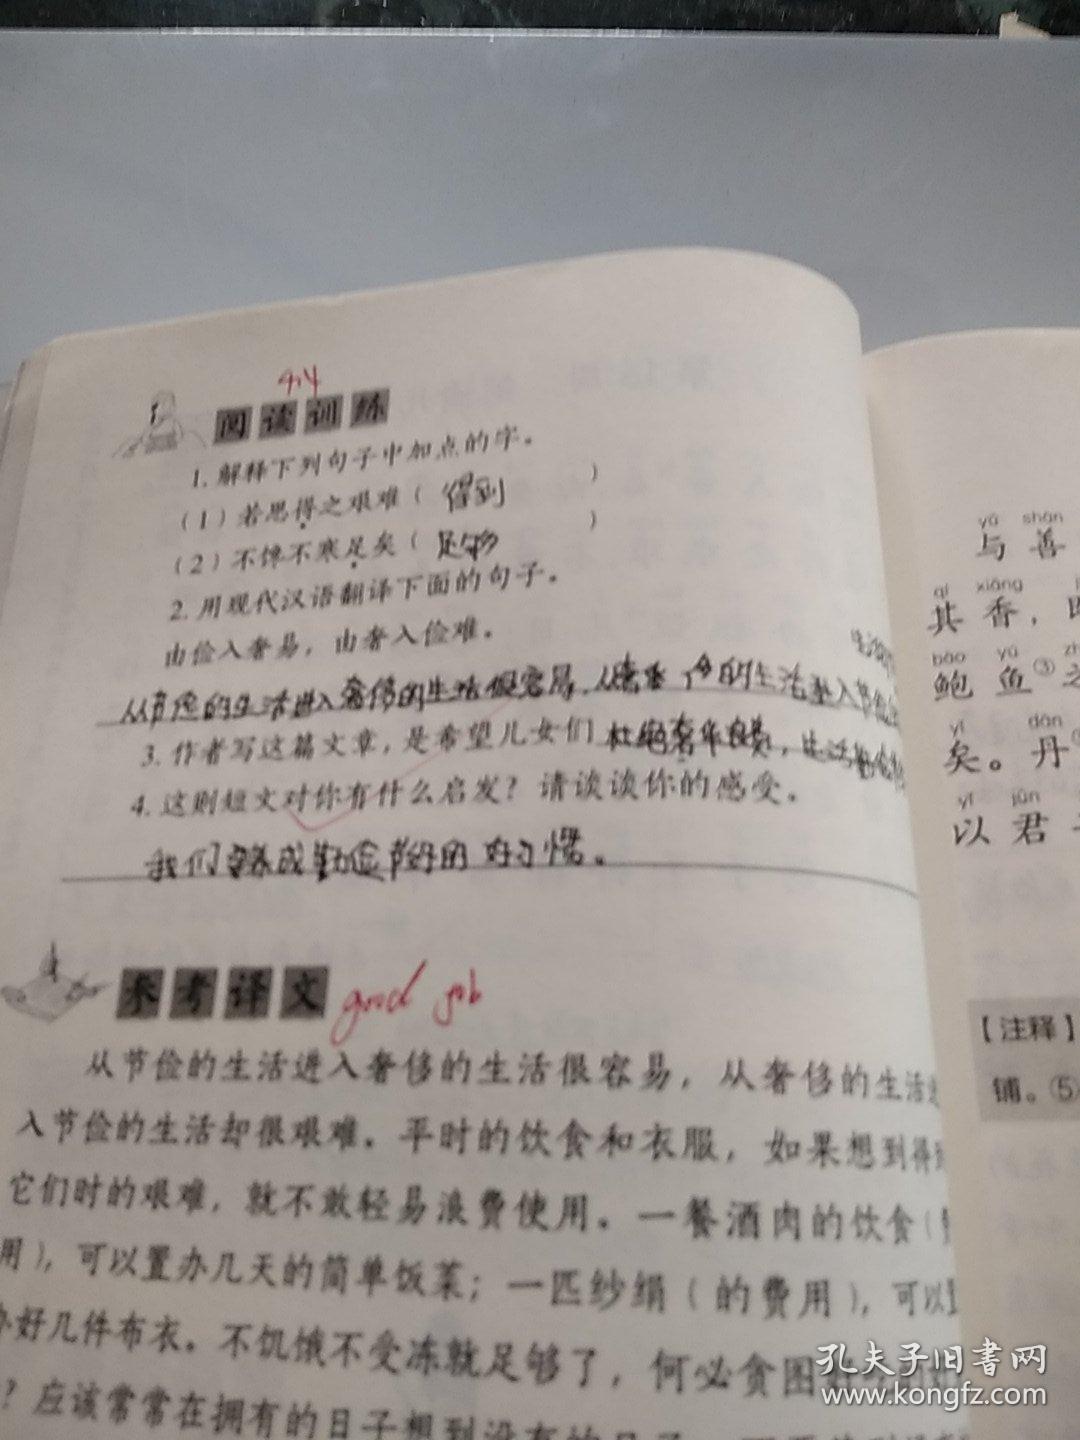 4.14
阅读训练
1. 解释下列句子中加点的字。
(1) 若思得之艰难 ( 得到 )
(2) 不馋不寒足矣 ( 足够 )
2. 用现代汉语翻译下面的句子。
由俭入奢易，由奢入俭难。
从节俭的生活进入奢侈的生活很容易，从 的生活 入节俭
3. 作者写这篇文章，是希望儿女们杜绝奢华浪费，生活
4. 这则短文对你有什么启发？请谈谈你的感受。
我们要养成勤俭节约的好习惯。
参考译文 good job
从节俭的生活进入奢侈的生活很容易，从奢侈的生活
入节俭的生活却很艰难。平时的饮食和衣服，如果想到得
它们时的艰难，就不敢轻易浪费使用。一餐酒肉的饮食（
用），可以置办几天的简单饭菜；一匹纱绢（的费用），可以
好几件布衣。不饥饿不受冻就足够了，何必贪图
？应该常常在拥有的日子想到没有的
yǔ shàn
与善
qí xiāng
其香，
bào yú
鲍鱼③之
yǐ dān
矣。丹
yǐ jūn
以君
【注释】
铺。⑤
孔夫子旧书网
www.kongfz.com